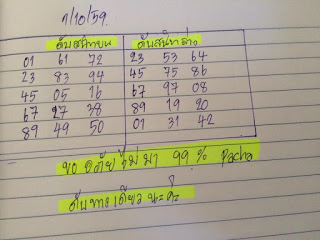 1/10/59
ดับสนิทบน ดับสนิทล่าง
01 61 72 23 53 64
23 83 94 45 75 86
45 05 16 67 97 08
67 27 38 89 19 20
89 49 50 01 31 42
ขออภัยไม่มา 99 % Pacha
ดับทางเดียวนะจ๊ะ